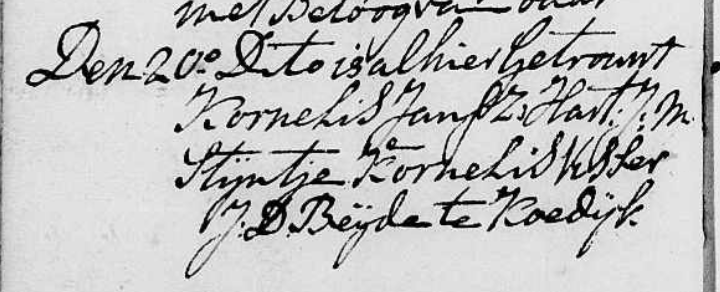 met Betoog van
Den 20º Dito is alhier Getrouwt
Kornelis Jansz: Hart. J: M.
Stijntje Kornelis Visser
J. D. Beÿde te Koedijk